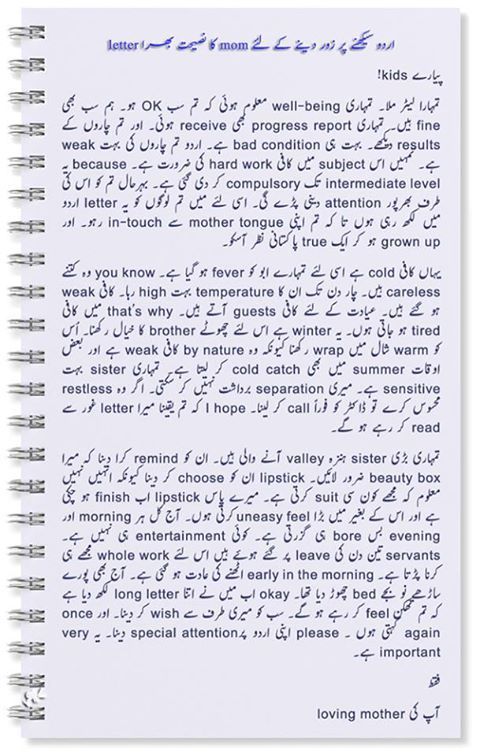 اردو سیکھنے پر زور دینے کے لئے mom کا نصیحت بھرا letter
پیارے kids!
تمہارا لیٹر ملا۔ تمہاری well-being معلوم ہوئی کہ تم سب OK ہو۔ ہم سب بھی
fine ہیں۔ تمہاری progress report بھی receive ہوئی۔ اور تم چاروں کے
results دیکھے۔ بہت ہی bad condition ہے۔ اردو تم چاروں کی بہت weak
ہے۔ تمہیں اس subject میں کافی hard work کی ضرورت ہے۔ because یہ
intermediate level تک compulsory کر دی گئی ہے۔ بہرحال تم کو اس کی
طرف بھرپور attention دینی پڑے گی۔ اسی لئے میں تم لوگوں کو یہ letter اردو
میں لکھ رہی ہوں تا کہ تم اپنی mother tongue سے in-touch رہو۔ اور
grown up ہو کر ایک true پاکستانی نظر آسکو۔
یہاں کافی cold ہے اسی لئے تمہارے ابو کو fever ہو گیا ہے۔ you know وہ کتنے
careless ہیں۔ چار دن تک ان کا temperature بہت high رہا۔ کافی weak
ہو گئے ہیں۔ عیادت کے لئے کافی guests آتے ہیں۔ that's why میں کافی
tired ہو جاتی ہوں۔ یہ winter ہے اس لئے چھوٹے brother کا خیال رکھنا۔ اُس
کو warm شال میں wrap رکھنا کیونکہ وہ by nature کافی weak ہے اور بعض
اوقات summer میں بھی cold catch کر لیتا ہے۔ تمہاری sister بہت
sensitive ہے۔ میری separation برداشت نہیں کر سکتی۔ اگر وہ restless
محسوس کرے تو ڈاکٹر کو فوراً call کر لینا۔ I hope کہ تم یقینا میرا letter غور سے
read کر رہے ہو گے۔
تمہاری بڑی sister ہنزہ valley آنے والی ہیں۔ ان کو remind کرا دینا کہ میرا
beauty box ضرور لائیں۔ lipstick ان کو choose کر دینا کیونکہ انہیں نہیں
معلوم کہ مجھے کون سی suit کرتی ہے۔ میرے پاس lipstick اب finish ہو چکی
ہے اور اس کے بغیر میں بڑا uneasy feel کرتی ہوں۔ آج کل ہر morning اور
evening بس bore ہی گزرتی ہے۔ کوئی entertainment ہی نہیں ہے۔
servants تین دن کی leave پر گئے ہوئے ہیں اس لئے whole work مجھے ہی
کرنا پڑتا ہے۔ early in the morning اٹھنے کی عادت ہو گئی ہے۔ آج بھی پورے
ساڑھے نو بجے bed چھوڑ دیا تھا۔ okay اب میں نے اتنا long letter لکھ دیا ہے
کہ تم تھکن feel کر رہے ہو گے۔ سب کو میری طرف سے wish کر دینا۔ اور once
again کہتی ہوں ۔ please اپنی اردو پر special attention دینا۔ یہ very
important ہے۔
فقط
آپ کی loving mother